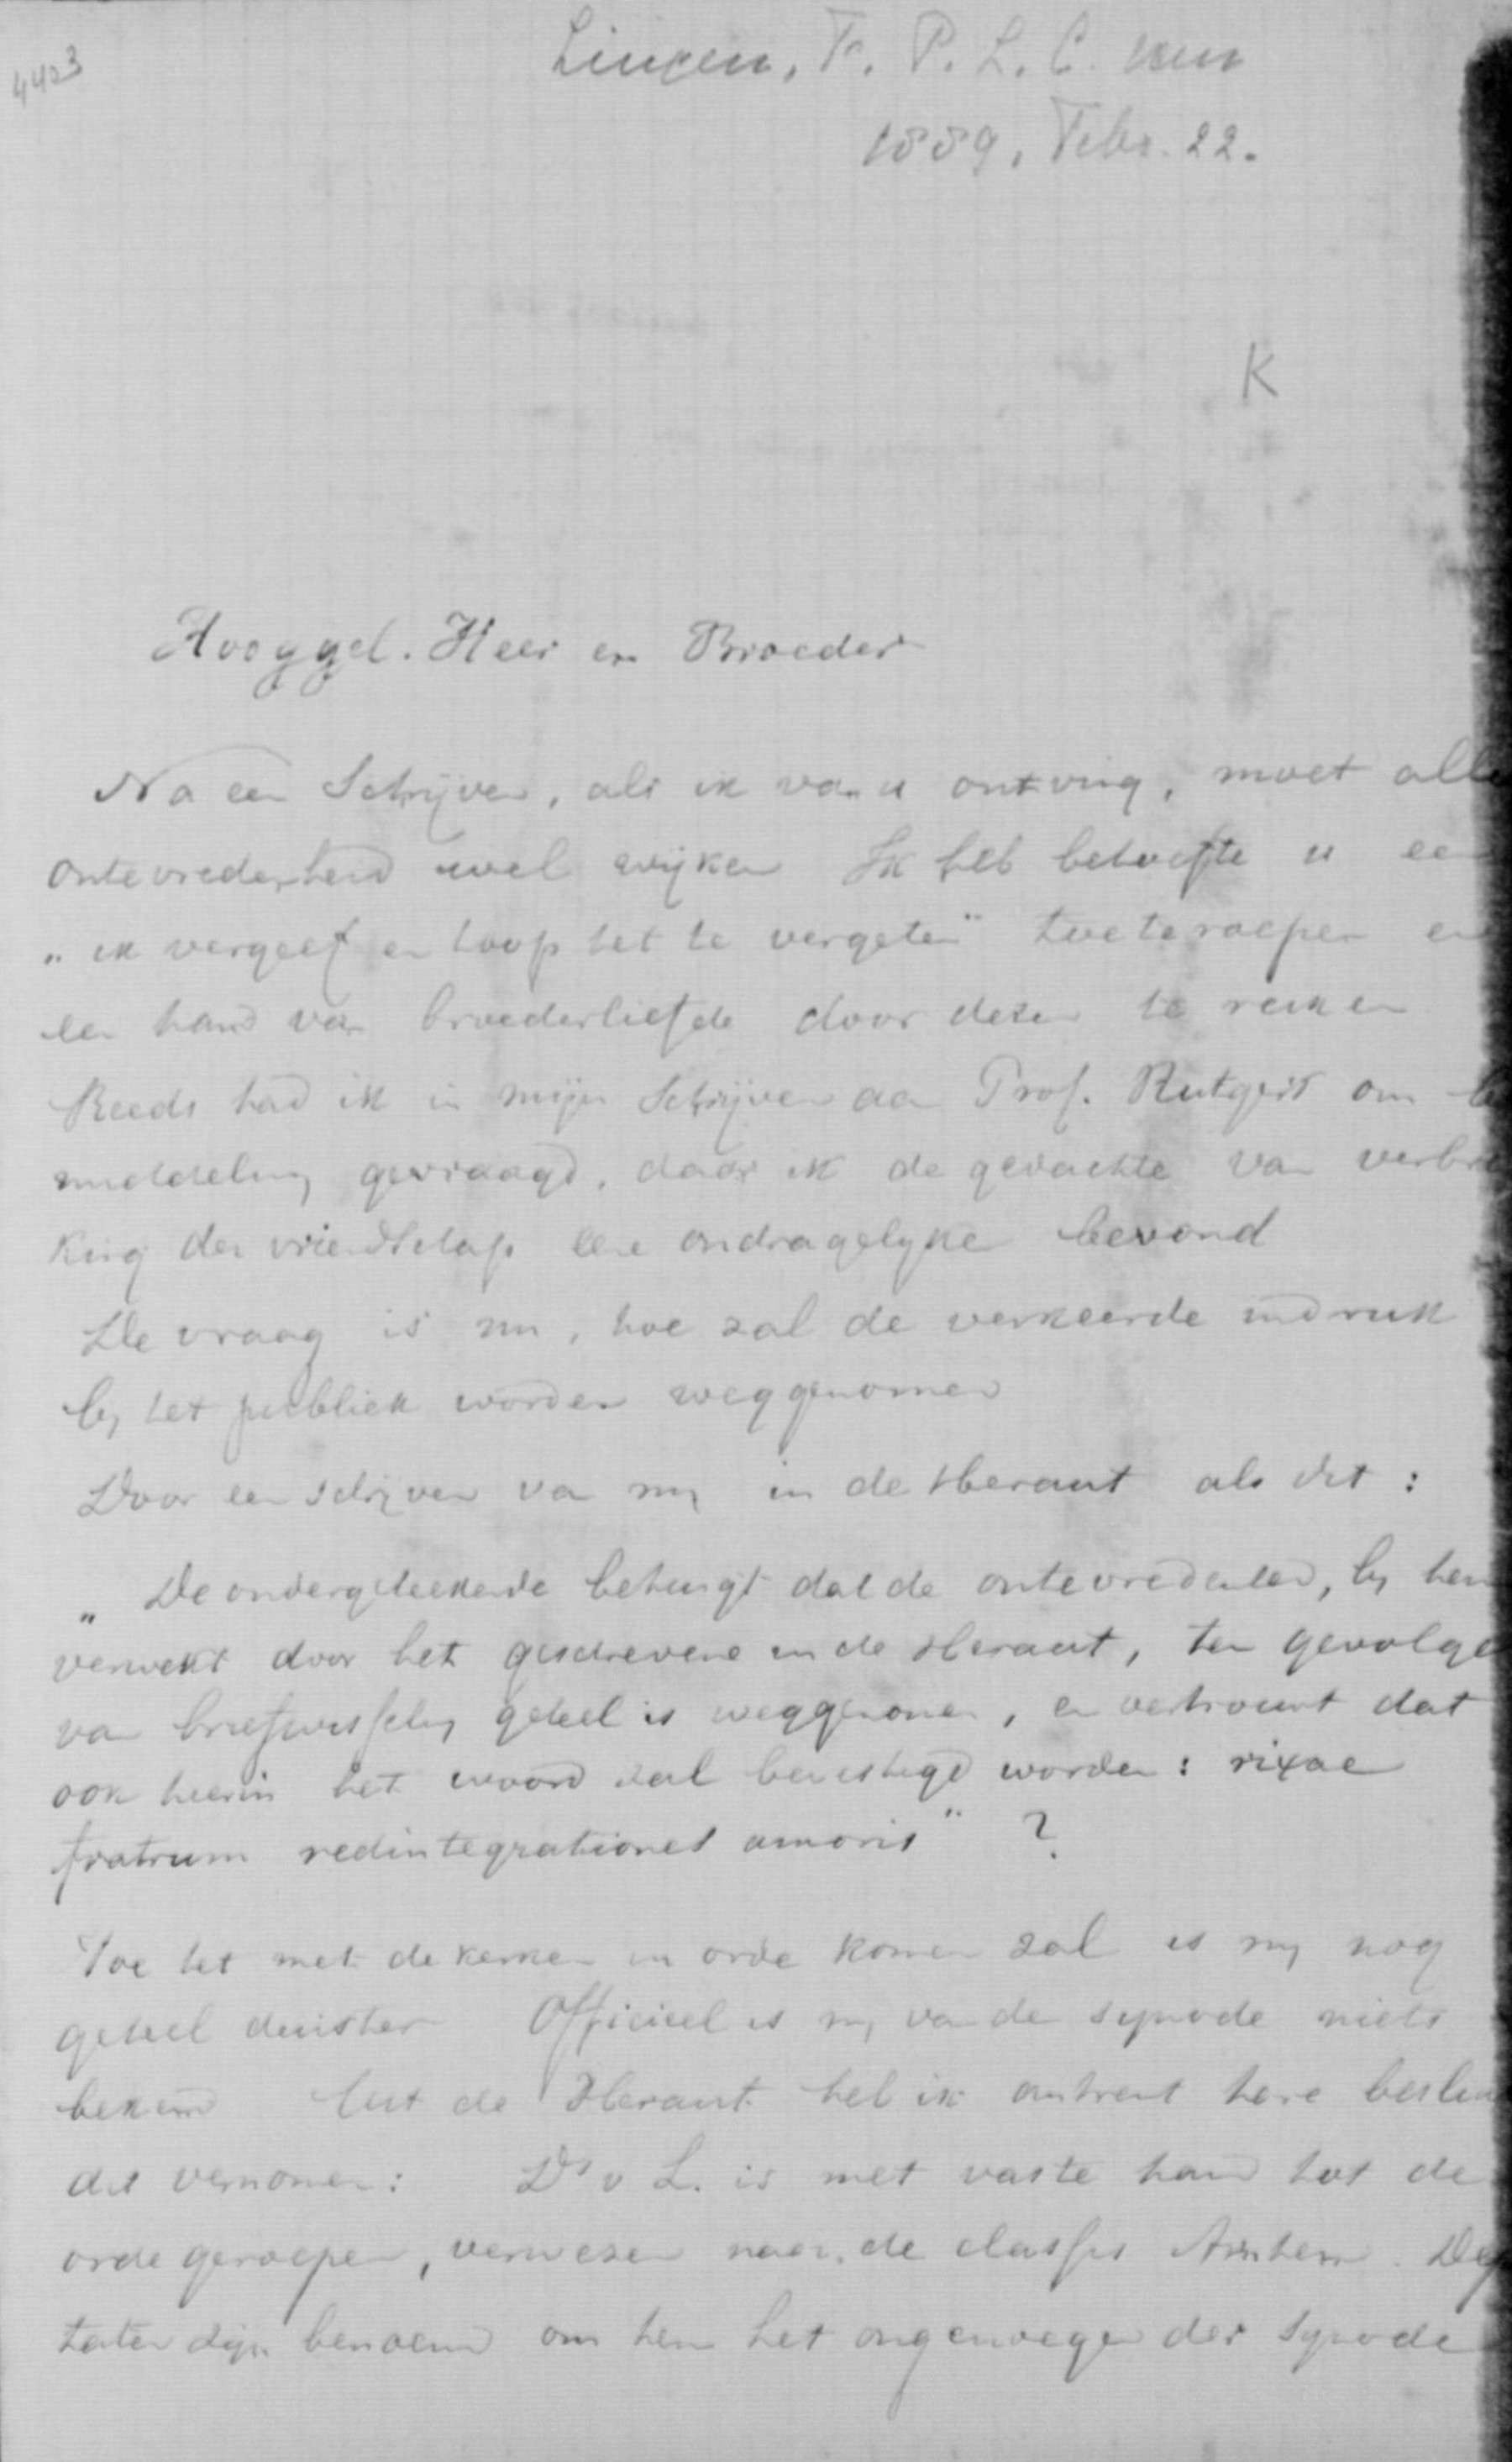 4403
Lingen, F. P. L. C. van
1889, Febr. 22.
K
Hooggel. Heer en Broeder
Na een Schrijven, als ik van u ontving, moet alle
ontevredenheid wel wijken Ik heb behoefte u een
„ik vergeef en hoop het te vergeten" toeteroepen en
een hand van broederliefde door dezen te reiken
Reeds had ik in mijn Schrijven aan Prof. Rutgers om
middeling gevraagd, daar ik de gedachte van verbre
king der vriendschap eene ondragelyke bevond
De vraag is nu, hoe zal de verkeerde indruk
by het publiek worden weggenomen
Door een schrijven van my in de Heraut als dit :
„De ondergeteekende betuigt dat de ontevredenheid, by hem
verwekt door het geschrevene in de Heraut, ten gevolge
van briefwisseling geheel is weggenomen, en vertrouwt dat
ook hierin het woord zal bevestigd worden : rixae
fratrum redintegrationes amoris" ?
Hoe het met de kerken in orde komen zal is my nog
geheel duister Officieel is my van de synode niets
bekend Uit de Heraut heb ik omtrent hare beslui
dit vernomen : Ds v L. is met vaste hand tot de
orde geroepen, verwezen naar de classis Arnhem. Dep
taten zijn benoemd om hem het ongenoegen der Synode